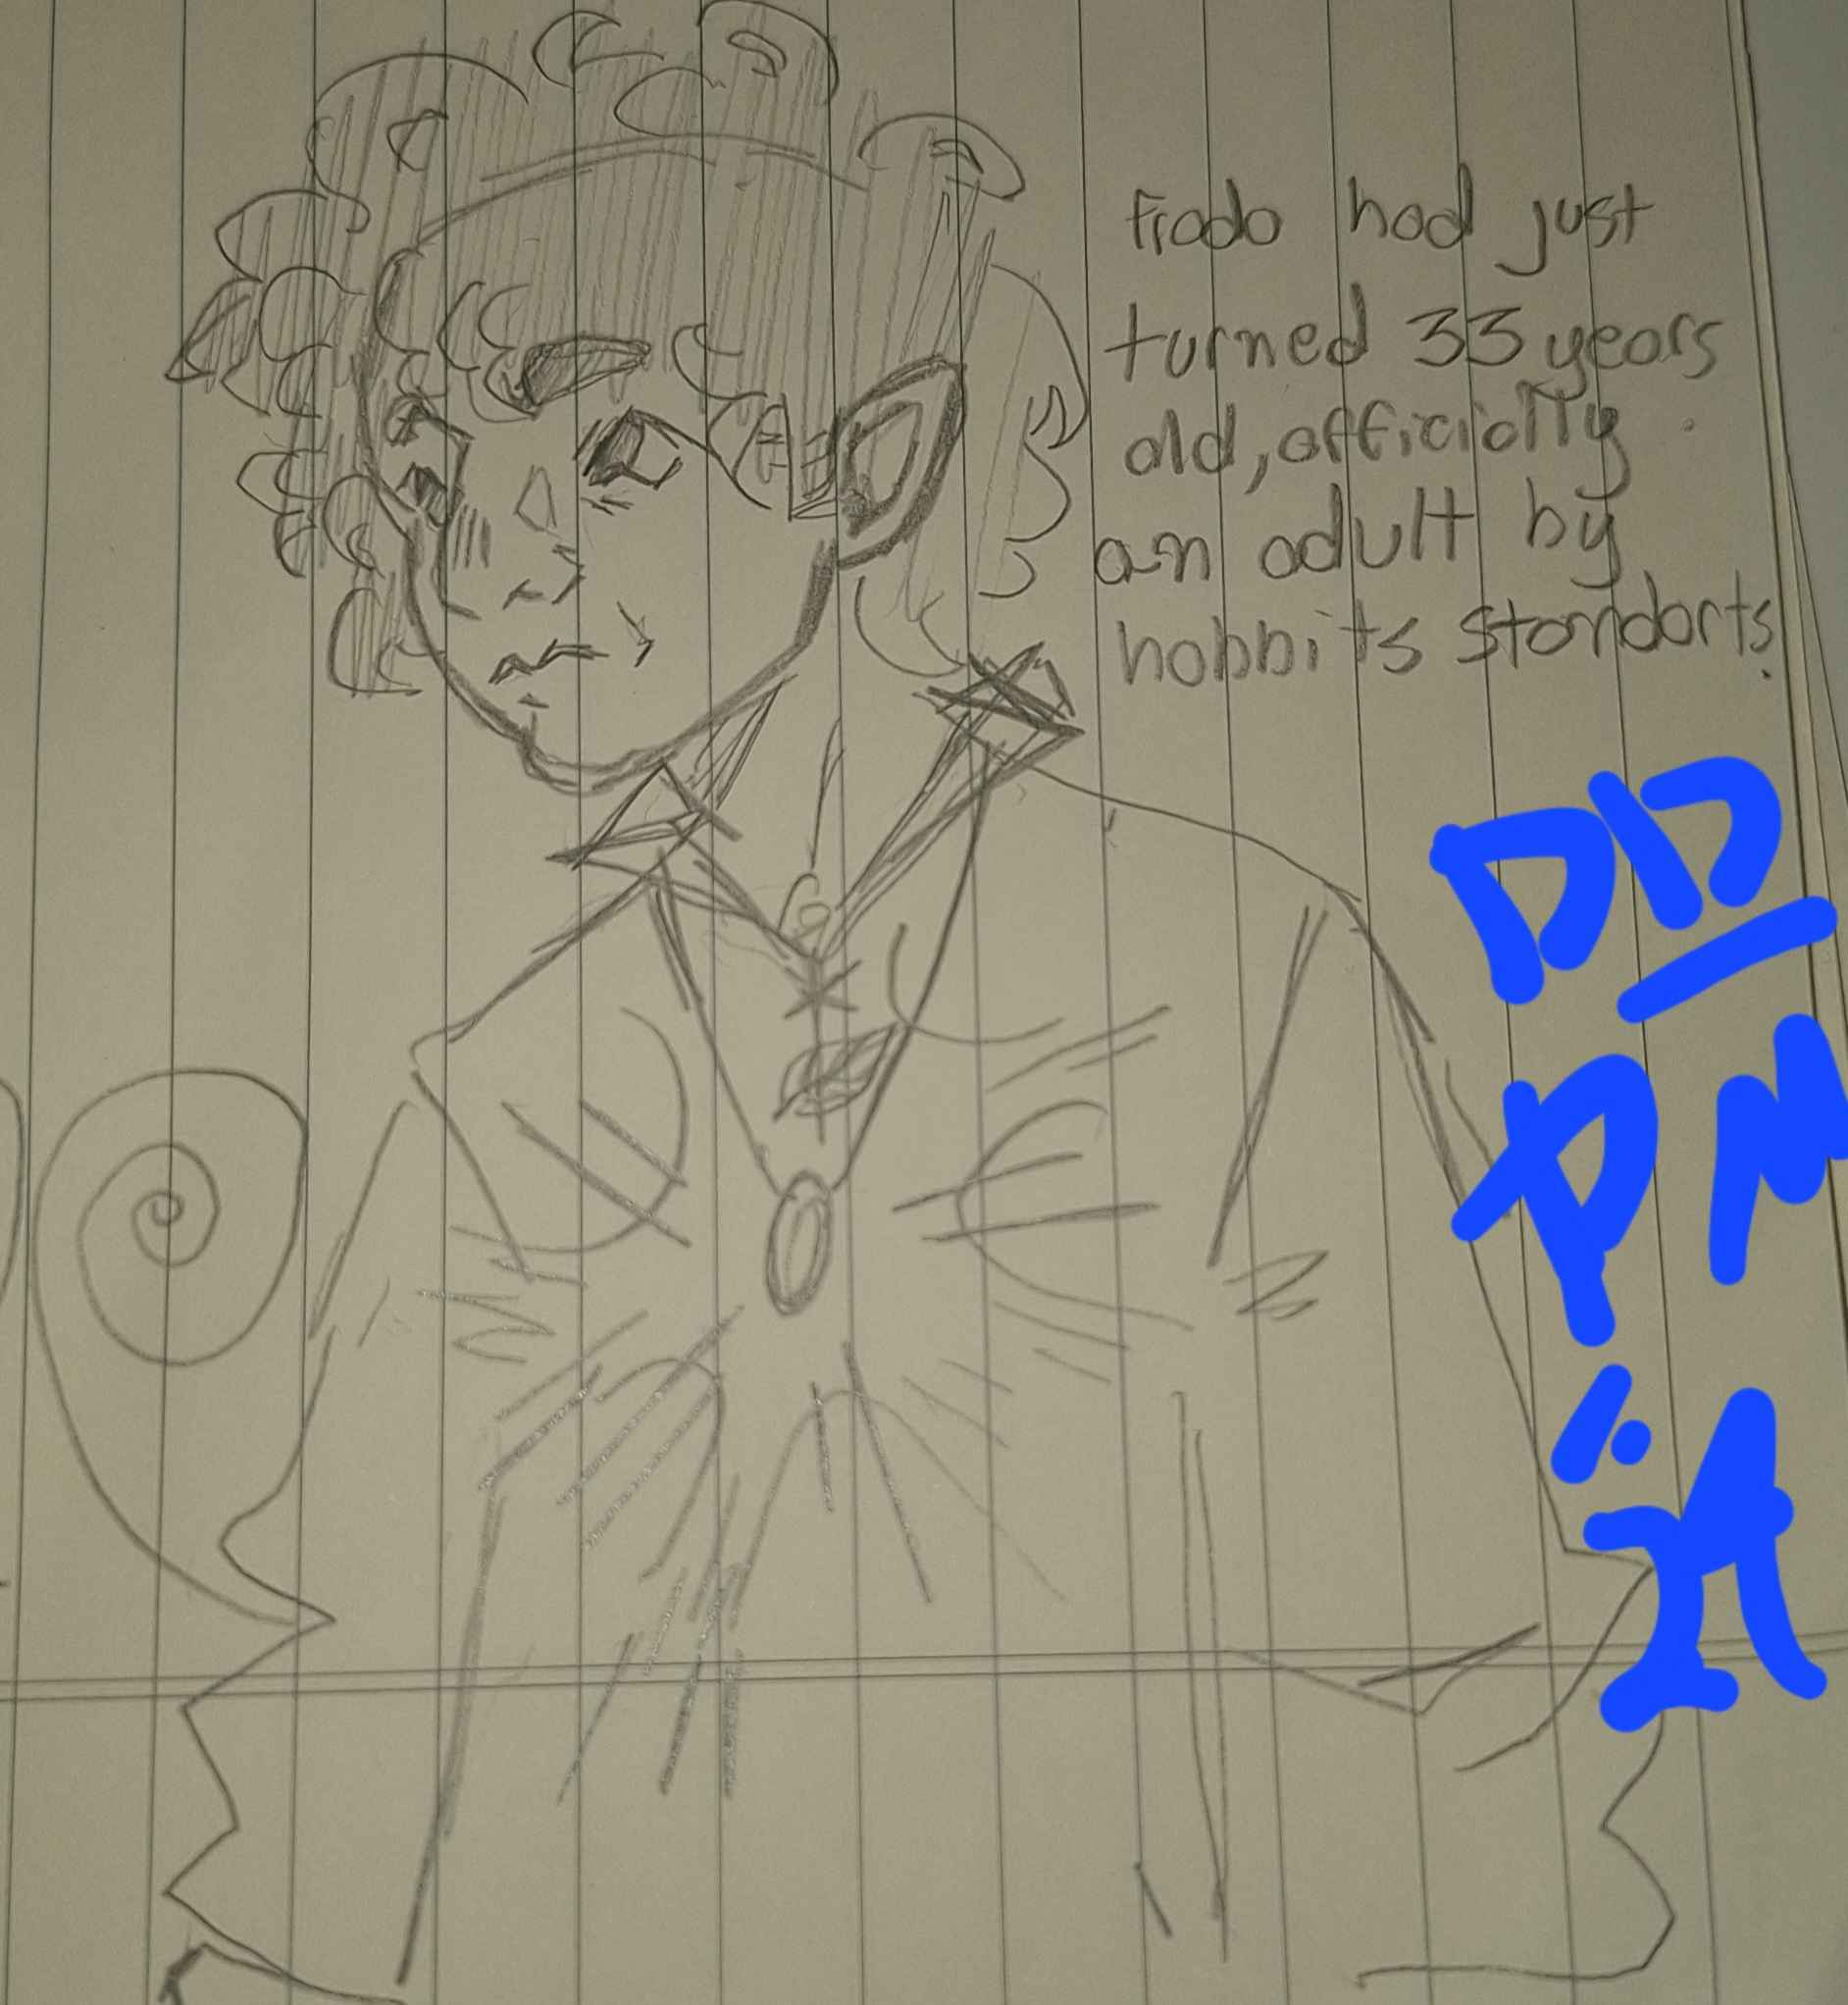 Frodo had just
turned 33 years
old, officially
an adult by
hobbits standarts.